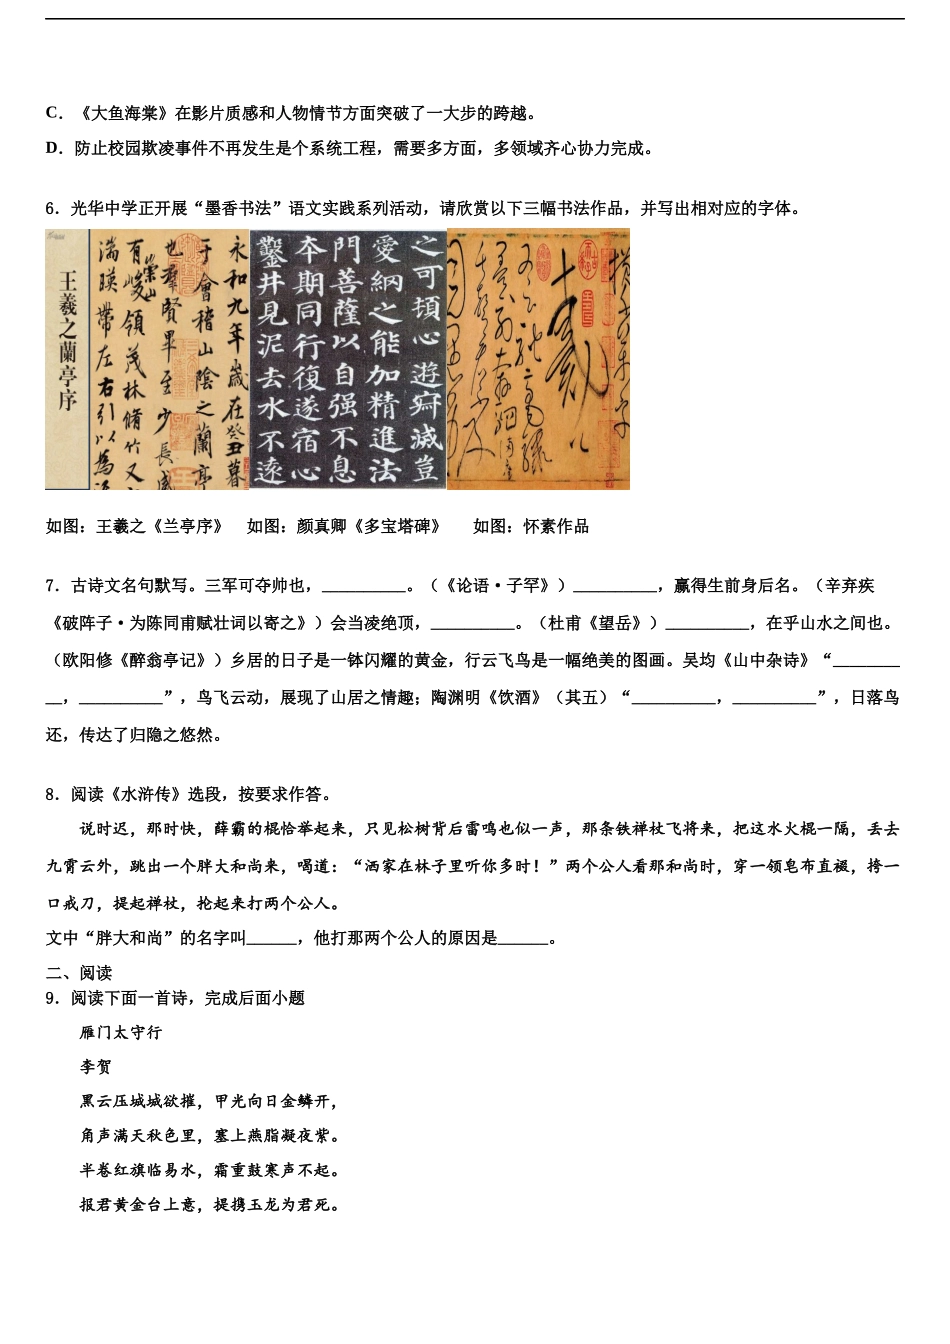 C．《大鱼海棠》在影片质感和人物情节方面突破了一大步的跨越。
D．防止校园欺凌事件不再发生是个系统工程，需要多方面，多领域齐心协力完成。
6．光华中学正开展“墨香书法”语文实践系列活动，请欣赏以下三幅书法作品，并写出相对应的字体。
王羲之蘭亭序
永和九年歲在癸丑暮
于會稽山陰之蘭亭
也羣賢畢至少長咸
有崇山峻領茂林脩竹又
湍暎帶左右引以為
之可頓心遊寂滅豈
愛納之能加精進法
門菩薩以自强不息
本期同行復遂宿心
鑿井見泥去水不遠
如图：王羲之《兰亭序》 如图：颜真卿《多宝塔碑》 如图：怀素作品
7．古诗文名句默写。三军可夺帅也，__________。（《论语·子罕》）__________，赢得生前身后名。（辛弃疾
《破阵子·为陈同甫赋壮词以寄之》）会当凌绝顶，__________。（杜甫《望岳》）__________，在乎山水之间也。
（欧阳修《醉翁亭记》）乡居的日子是一钵闪耀的黄金，行云飞鸟是一幅绝美的图画。吴均《山中杂诗》“________
__，__________”，鸟飞云动，展现了山居之情趣；陶渊明《饮酒》（其五）“__________，__________”，日落鸟
还，传达了归隐之悠然。
8．阅读《水浒传》选段，按要求作答。
说时迟，那时快，薛霸的棍恰举起来，只见松树背后雷鸣也似一声，那条铁禅杖飞将来，把这水火棍一隔，丢去
九霄云外，跳出一个胖大和尚来，喝道：“洒家在林子里听你多时！”两个公人看那和尚时，穿一领皂布直裰，挎一
口戒刀，提起禅杖，抡起来打两个公人。
文中“胖大和尚”的名字叫______，他打那两个公人的原因是______。
二、阅读
9．阅读下面一首诗，完成后面小题
雁门太守行
李贺
黑云压城城欲摧，甲光向日金鳞开，
角声满天秋色里，塞上燕脂凝夜紫。
半卷红旗临易水，霜重鼓寒声不起。
报君黄金台上意，提携玉龙为君死。